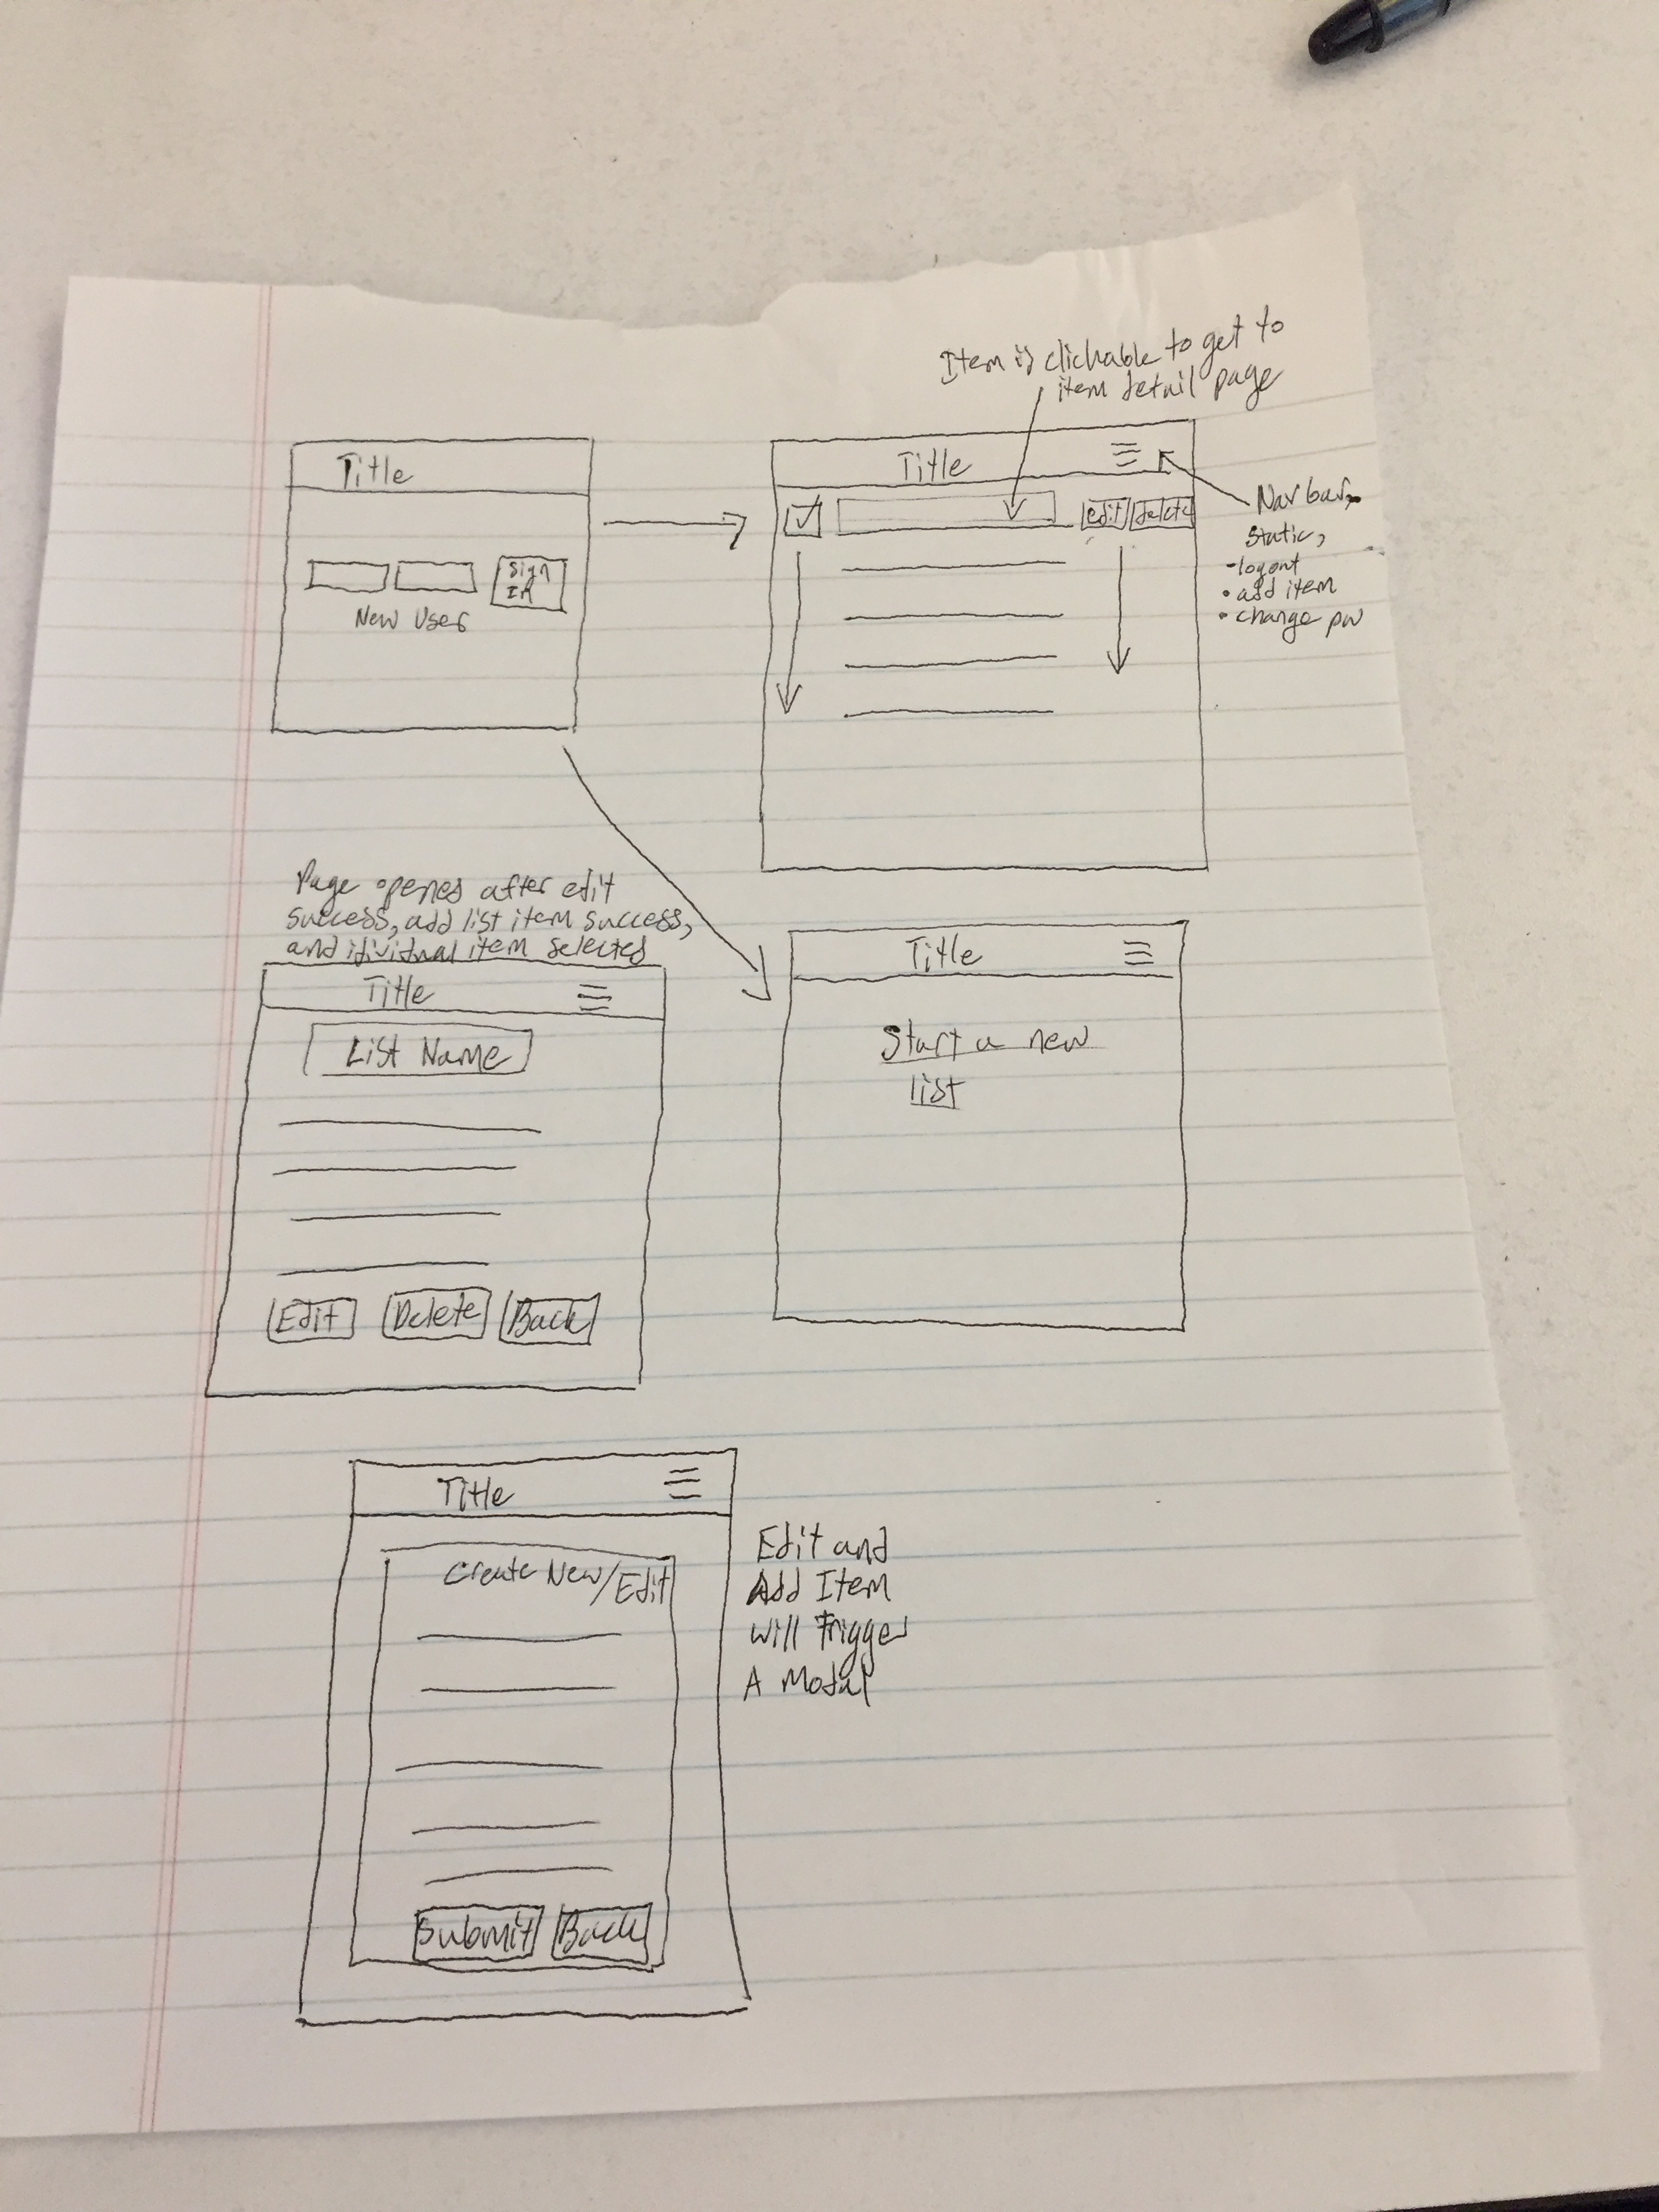 Item is clickable to get to
item detail page
Title
Sign
In
New User
Title
edit delete
Navbar,
static,
-logout
• add item
• change pw
Page openes after edit
success, add list item success,
and idividual item selected
Title
List Name
Edit Delete Back
Title
Start a new
list
Title
Create New/Edit
Submit Back
Edit and
Add Item
will Trigger
A Modal